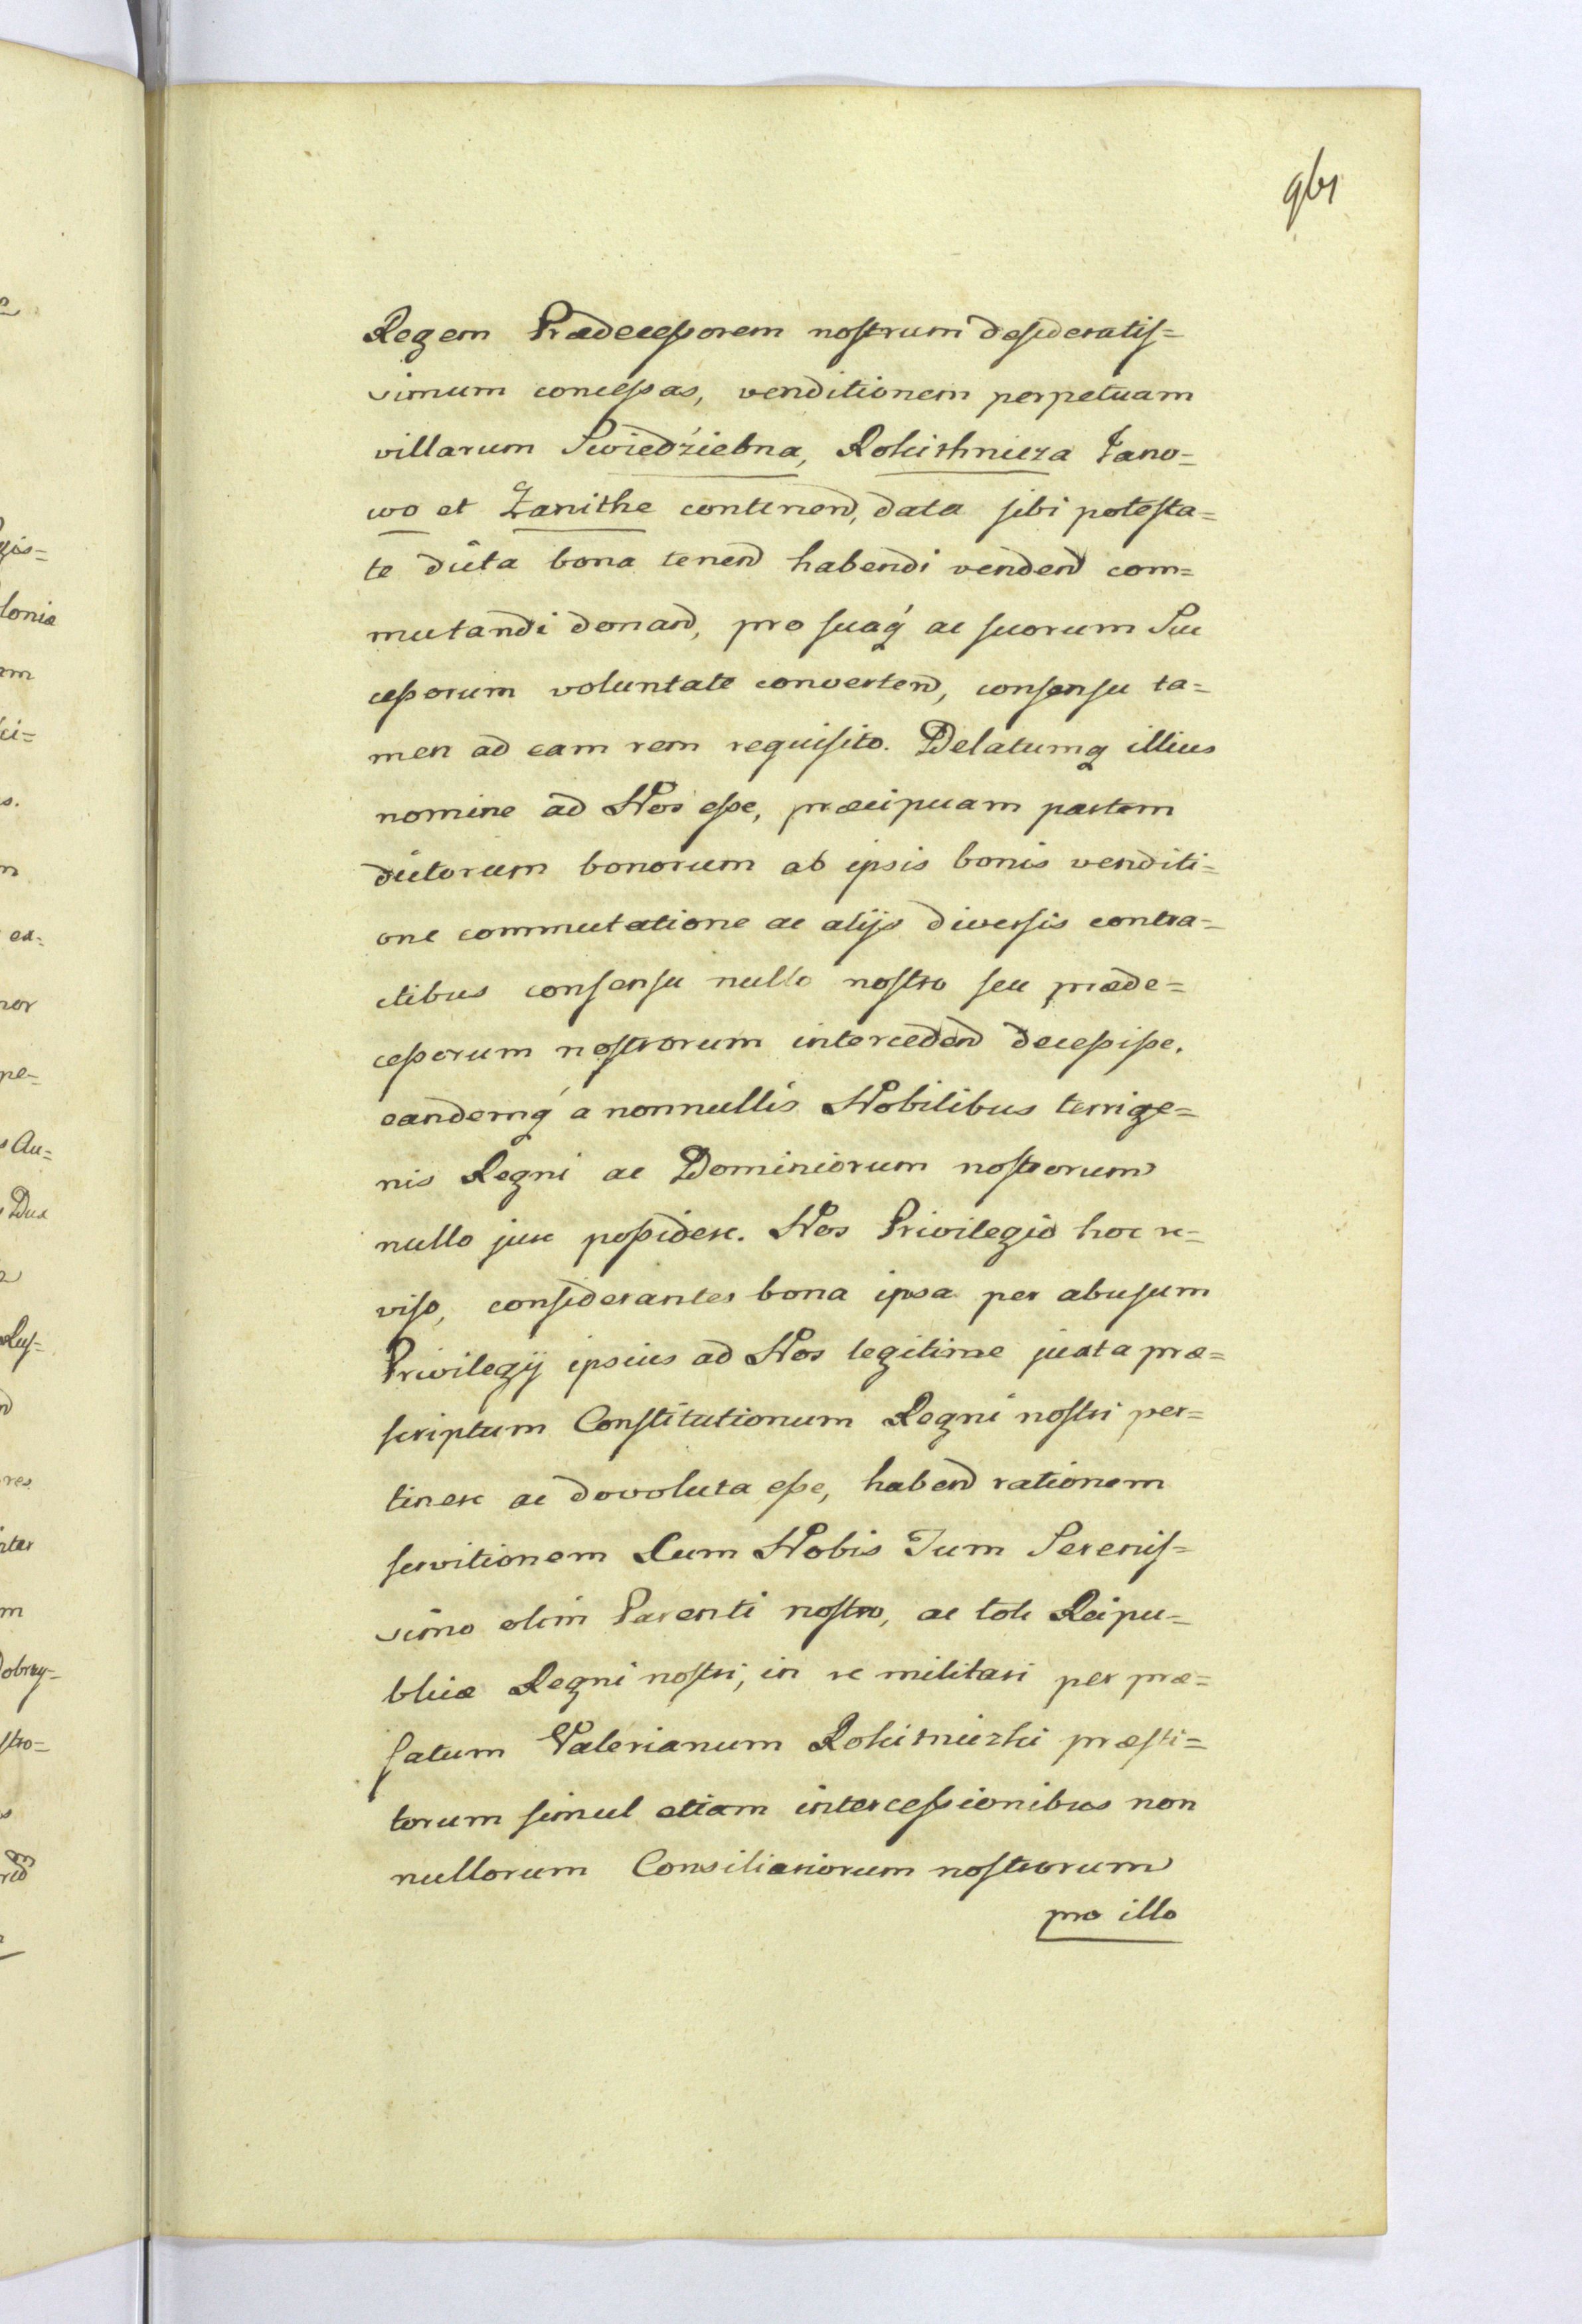 Regem Prædecessorem nostrum desideratis=
simum concessas, venditionem perpetuam
villarum Swiedźiebna, Rokithnicza Jano=
wo et Zanithe continend, data sibi potesta=
te dicta bona tenend habendi vendend com=
mutandi donand, pro suaq́ ac suorum Suc
cessorum voluntate convertend, consensu ta=
men ad eam rem requisito. Delatumq illius
nomine ad Nos esse, præcipuam partem
dictorum bonorum ab ipsis bonis venditi=
one commutatione ac alijs diversis contra=
ctibus consensu nullo nostro seu præde=
cessorum nostrorum intercedend decessisse.
eandemq́ a nonnullis Nobilibus terrige=
nis Regni ac Dominiorum nostrorum
nullo jure possidere. Nos Privilegio hoc re=
viso, considerantes bona ipsa per abusum
Privilegij ipsius ad Nos legitime juxta præ=
scriptum Constitutionum Regni nostri per=
tinere ac dovoluta esse, habend rationem
servitionem Cum Nobis Tum Serenis=
simo olim Parenti nostro, ac toti Reipu=
blicæ Regni nostri, in re militari per præ=
fatum Valerianum Rokitniczki præsti=
torum simul etiam intercessionibus non
nullorum Consiliariorum nostrorum
pro illo